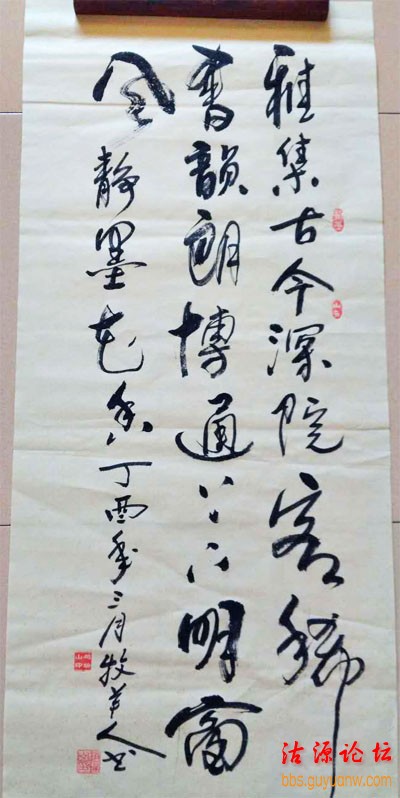 雅集古今深院客稀
書韻朗博通明窗
风靜墨花香丁酉年三月牧羊人书
沽源论坛
bbs.guyuanw.com